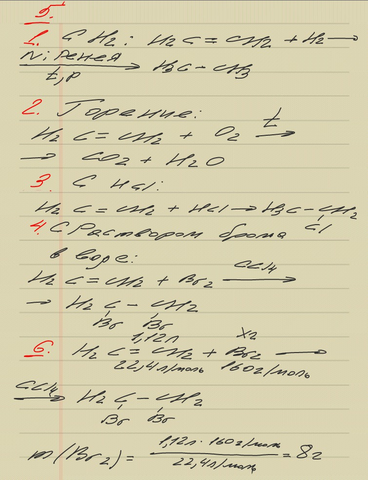 5.
1. С H₂: H₂C=CH₂ + H₂ →
Ni Ренея
t, p → H₃C-CH₃
2. Горение:
H₂C=CH₂ + O₂ t →
→ CO₂ + H₂O
3. С HCl:
H₂C=CH₂ + HCl → H₃C-CH₂
Cl
4. С Раствором брома
в воде:
H₂C=CH₂ + Br₂ CCl₄ →
→ H₂C-CH₂
Br Br
1,12л xг
6. H₂C=CH₂ + Br₂ →
22,4л/моль 160г/моль
CCl₄ → H₂C-CH₂
Br Br
m(Br₂) = 1,12л·160г/моль / 22,4л/моль = 8г